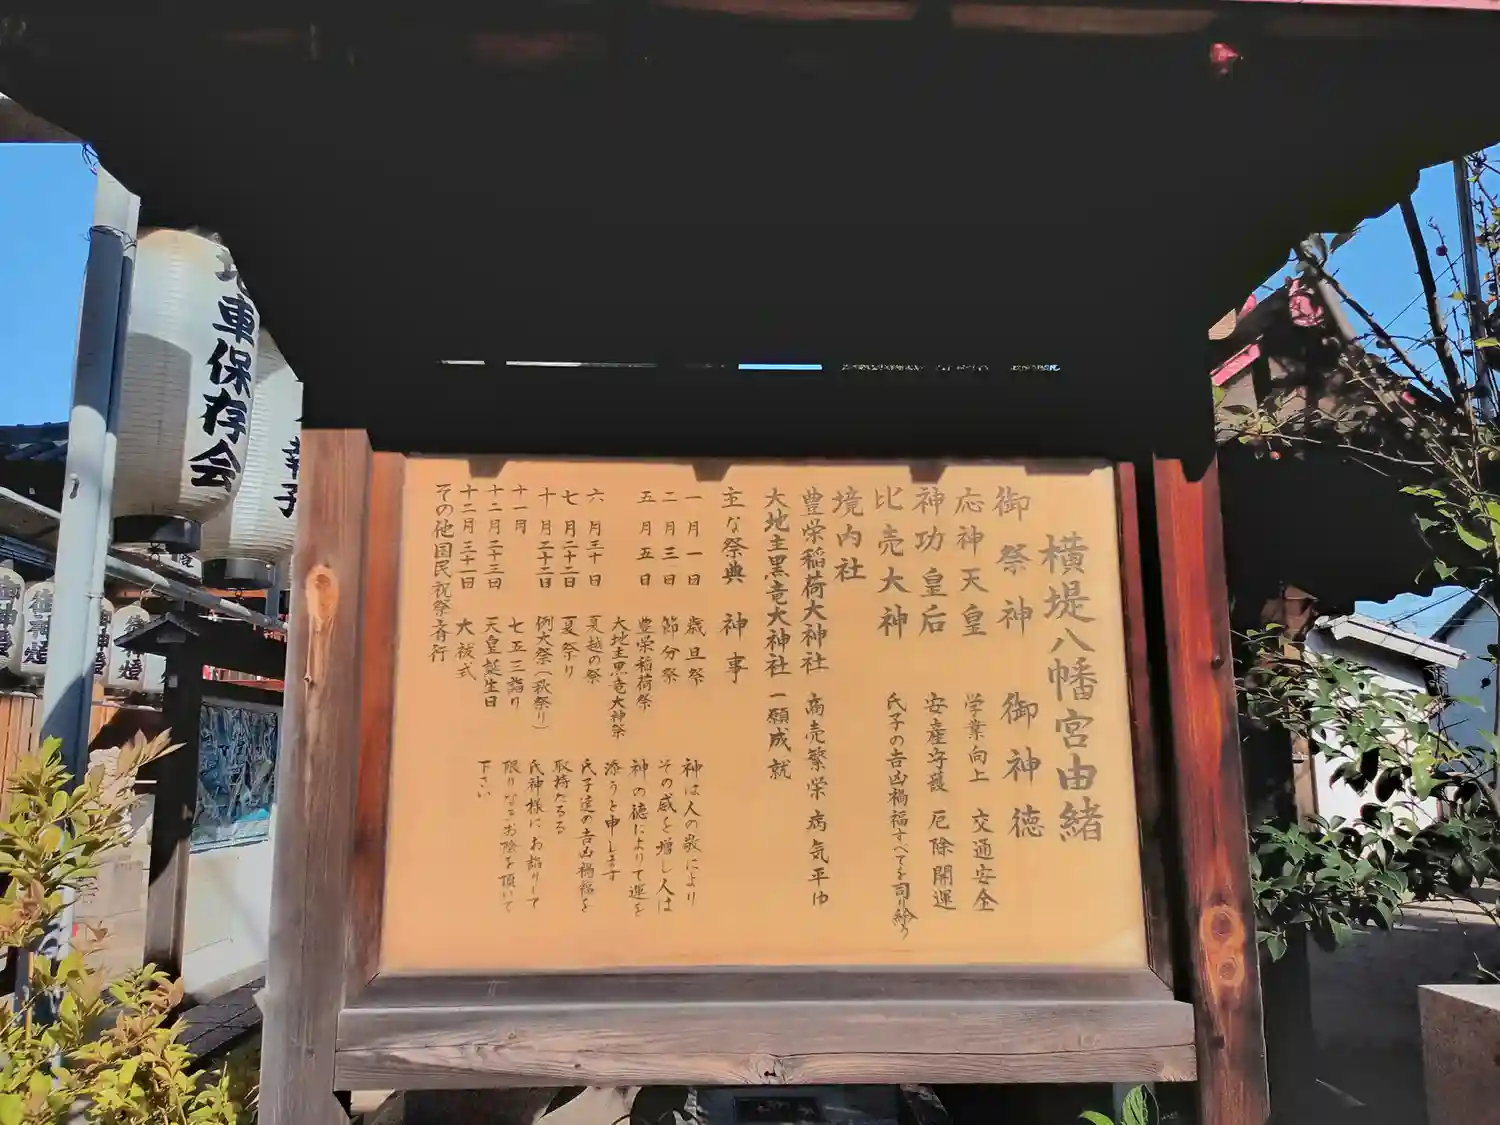 横堤八幡宮由緒
御祭神 御神徳
応神天皇 学業向上 交通安全
神功皇后 安産守護 厄除開運
比売大神 氏子の吉凶禍福すべてを司り給う
境内社
豊栄稲荷大神社 商売繁栄 病気平ゆ
大地主黒竜大神社 一願成就
主な祭典 神事
一月一日 歳旦祭
二月三日 節分祭
五月五日 豊栄稲荷祭
大地主黒竜大神祭
六月三十日 夏越の祭
七月二十二日 夏祭り
十月二十二日 例大祭(秋祭り)
十一月 七五三詣り
十二月二十三日 天皇誕生日
十二月三十一日 大祓式
その他国民祝祭斎行
神は人の敬により
その威を増し人は
神の徳によりて運を
添うと申します
氏子達の吉凶禍福を
取持たるる
氏神様にお詣りして
限りなきお陰を頂いて
下さい
地車保存会
幸子
御神燈
御神燈